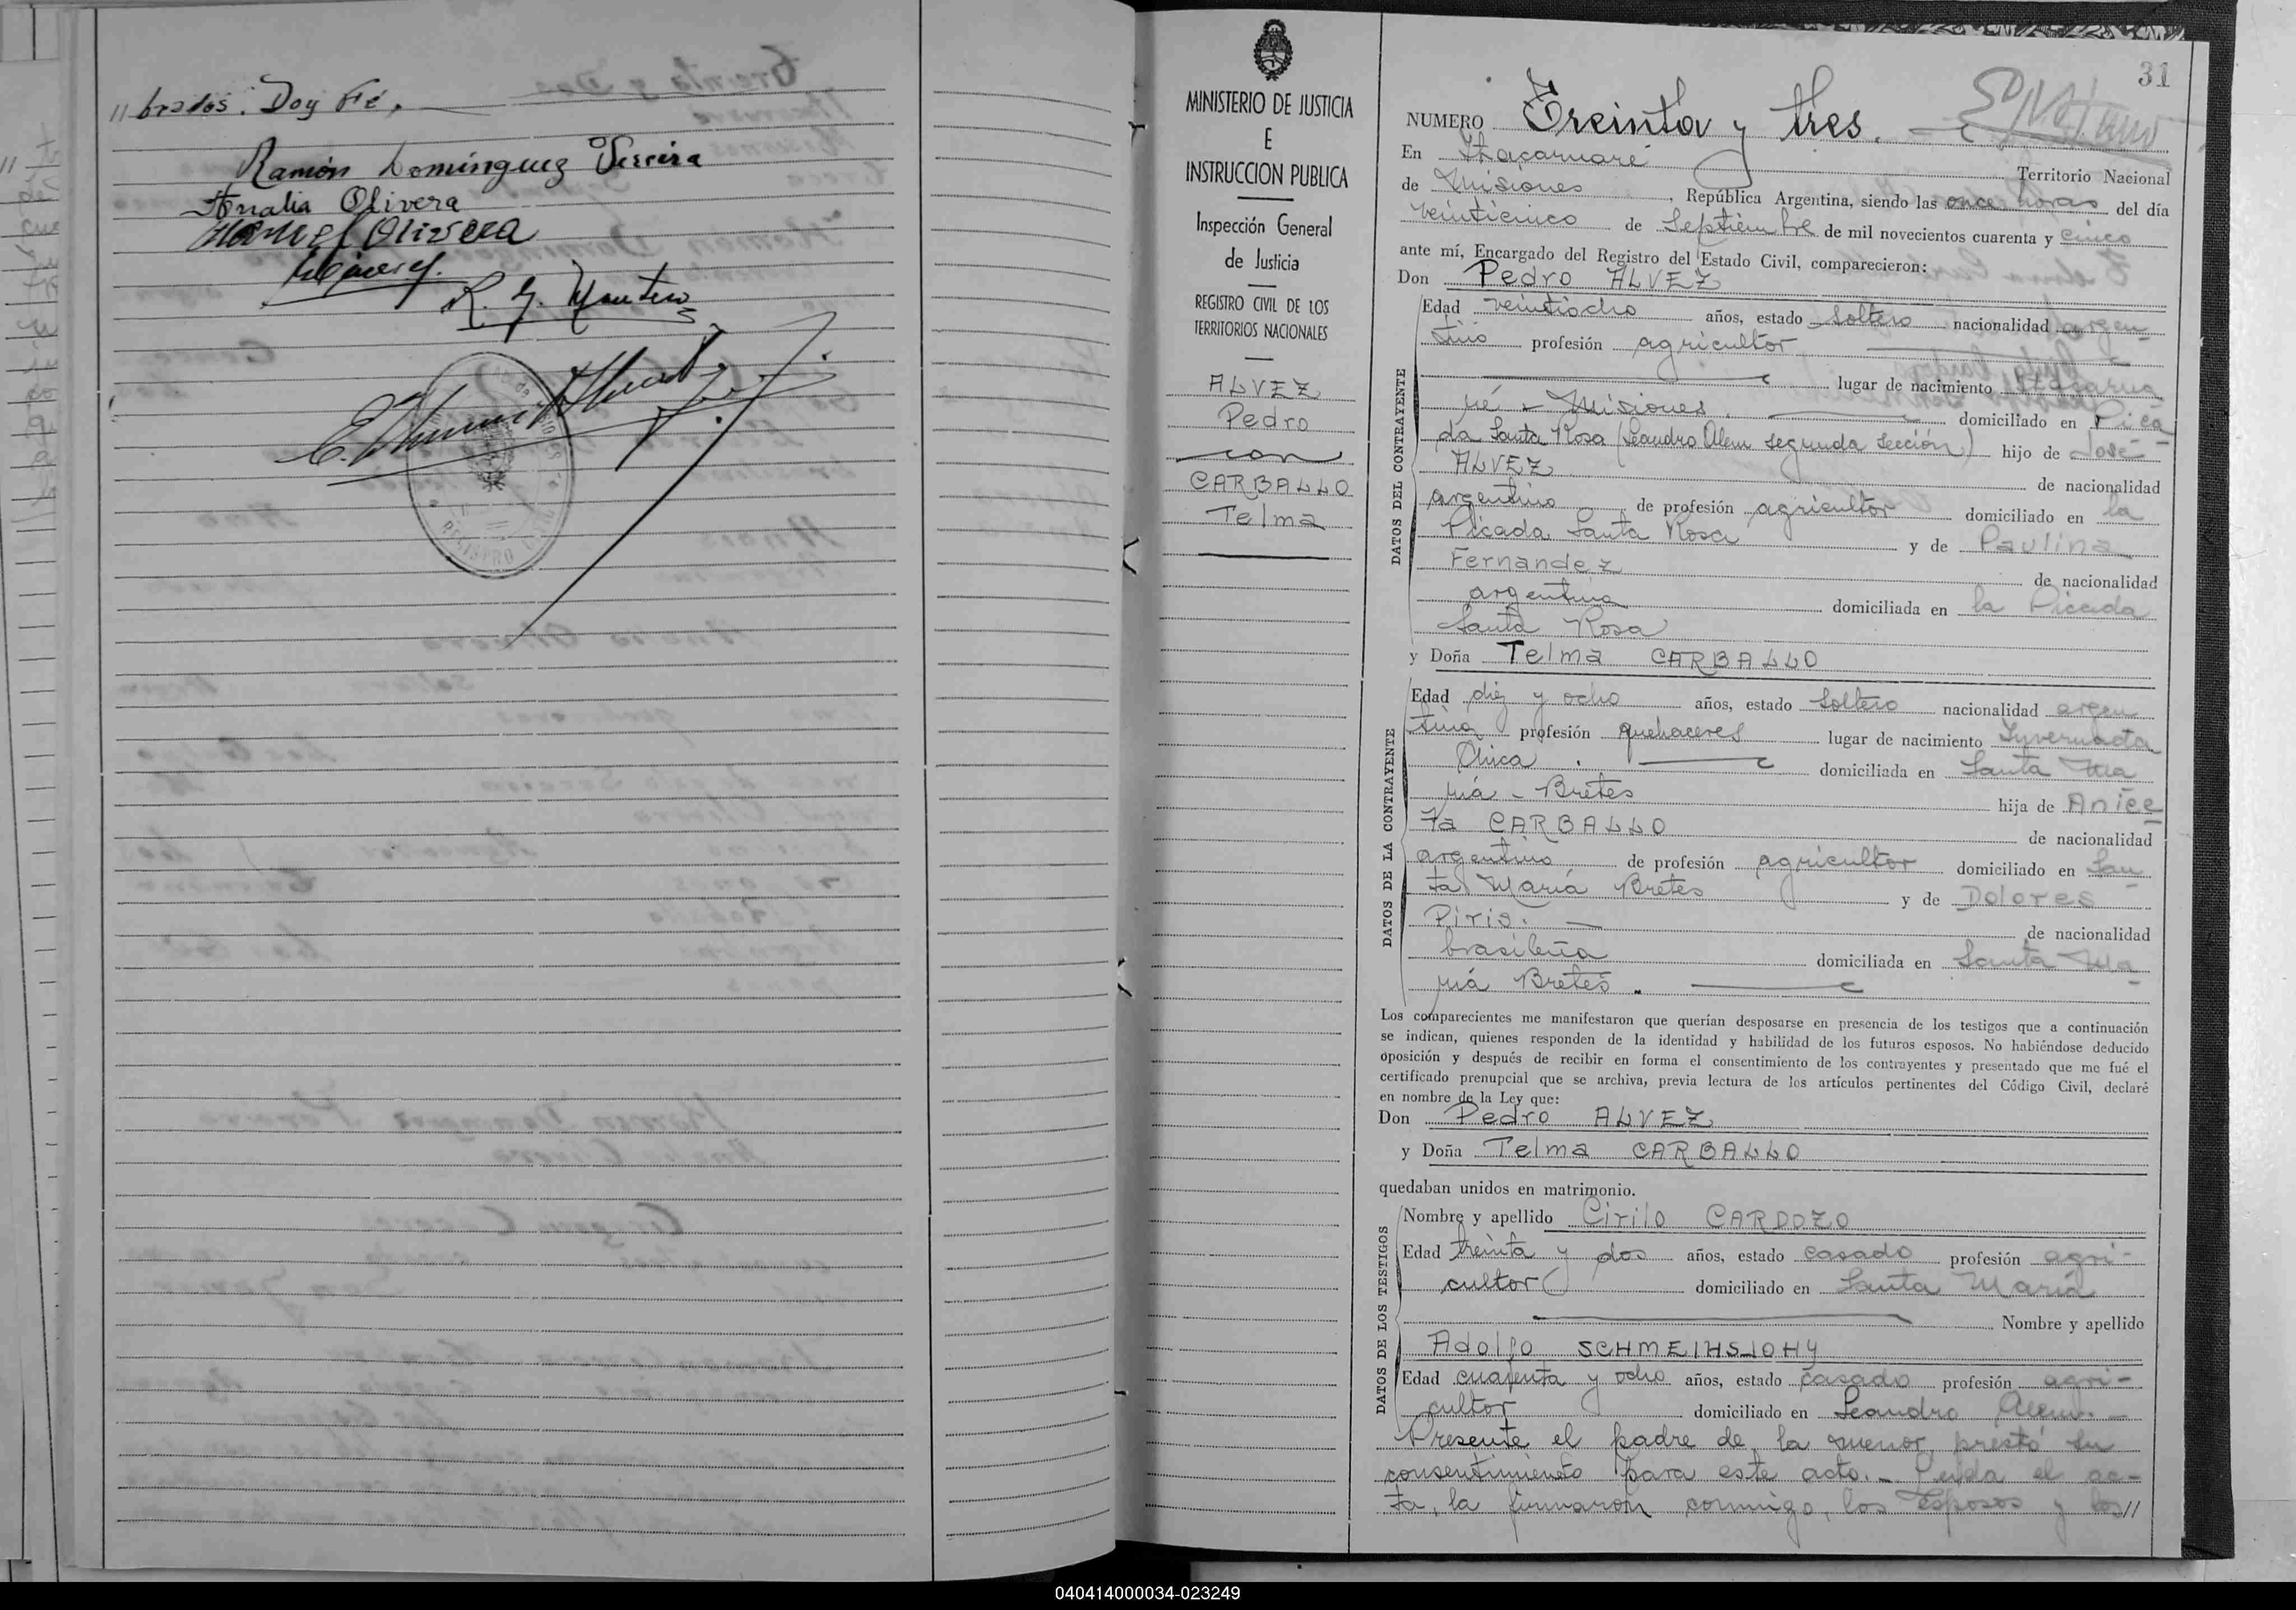 // brados. Doy Fé,
Ramón Domínguez Pereira
Analia Olivera
Manuel Olivera
MINISTERIO DE JUSTICIA
E
INSTRUCCION PUBLICA
Inspección General
de Justicia
REGISTRO CIVIL DE LOS
TERRITORIOS NACIONALES
ALVEZ
Pedro
con
CARBALLO
Telma
31
NUMERO Treinta y tres.
En Itacaruaré Territorio Nacional
de Misiones, República Argentina, siendo las once horas del día
veinticinco de Septiembre de mil novecientos cuarenta y cinco
ante mí, Encargado del Registro del Estado Civil, comparecieron:
Don Pedro ALVEZ
DATOS DEL CONTRAYENTE
Edad veintiocho años, estado soltero nacionalidad argen
tino profesión agricultor
lugar de nacimiento Itacarua
ré - Misiones. domiciliado en Pica
da Santa Rosa (Leandro Alem segunda sección) hijo de José
ALVEZ de nacionalidad
argentino de profesión agricultor domiciliado en la
Picada Santa Rosa y de Paulina
Fernandez de nacionalidad
argentina domiciliada en la Picada
Santa Rosa
y Doña Telma CARBALLO
DATOS DE LA CONTRAYENTE
Edad diez y ocho años, estado soltera nacionalidad argen
tina profesión quehaceres lugar de nacimiento Invernada
Chica. domiciliada en Santa Ma
ría - Bretes hija de Anice
to CARBALLO de nacionalidad
argentino de profesión agricultor domiciliado en San
ta María Bretes y de Dolores
Piris. de nacionalidad
brasileña domiciliada en Santa Ma
ría Bretes.
Los comparecientes me manifestaron que querían desposarse en presencia de los testigos que a continuación
se indican, quienes responden de la identidad y habilidad de los futuros esposos. No habiéndose deducido
oposición y después de recibir en forma el consentimiento de los contrayentes y presentado que me fué el
certificado prenupcial que se archiva, previa lectura de los artículos pertinentes del Código Civil, declaré
en nombre de la Ley que:
Don Pedro ALVEZ
y Doña Telma CARBALLO
quedaban unidos en matrimonio.
DATOS DE LOS TESTIGOS
Nombre y apellido Cirilo CARDOZO
Edad treinta y dos años, estado casado profesión agri-
cultor domiciliado en Santa María
Nombre y apellido
Adolfo
Edad cuarenta y ocho años, estado casado profesión agri-
cultor domiciliado en Leandro Alem. -
Presente el padre de la menor, prestó su
consentimiento para este acto. - Leída el ac-
ta, la firmaron conmigo, los esposos y los //
040414000034-023249